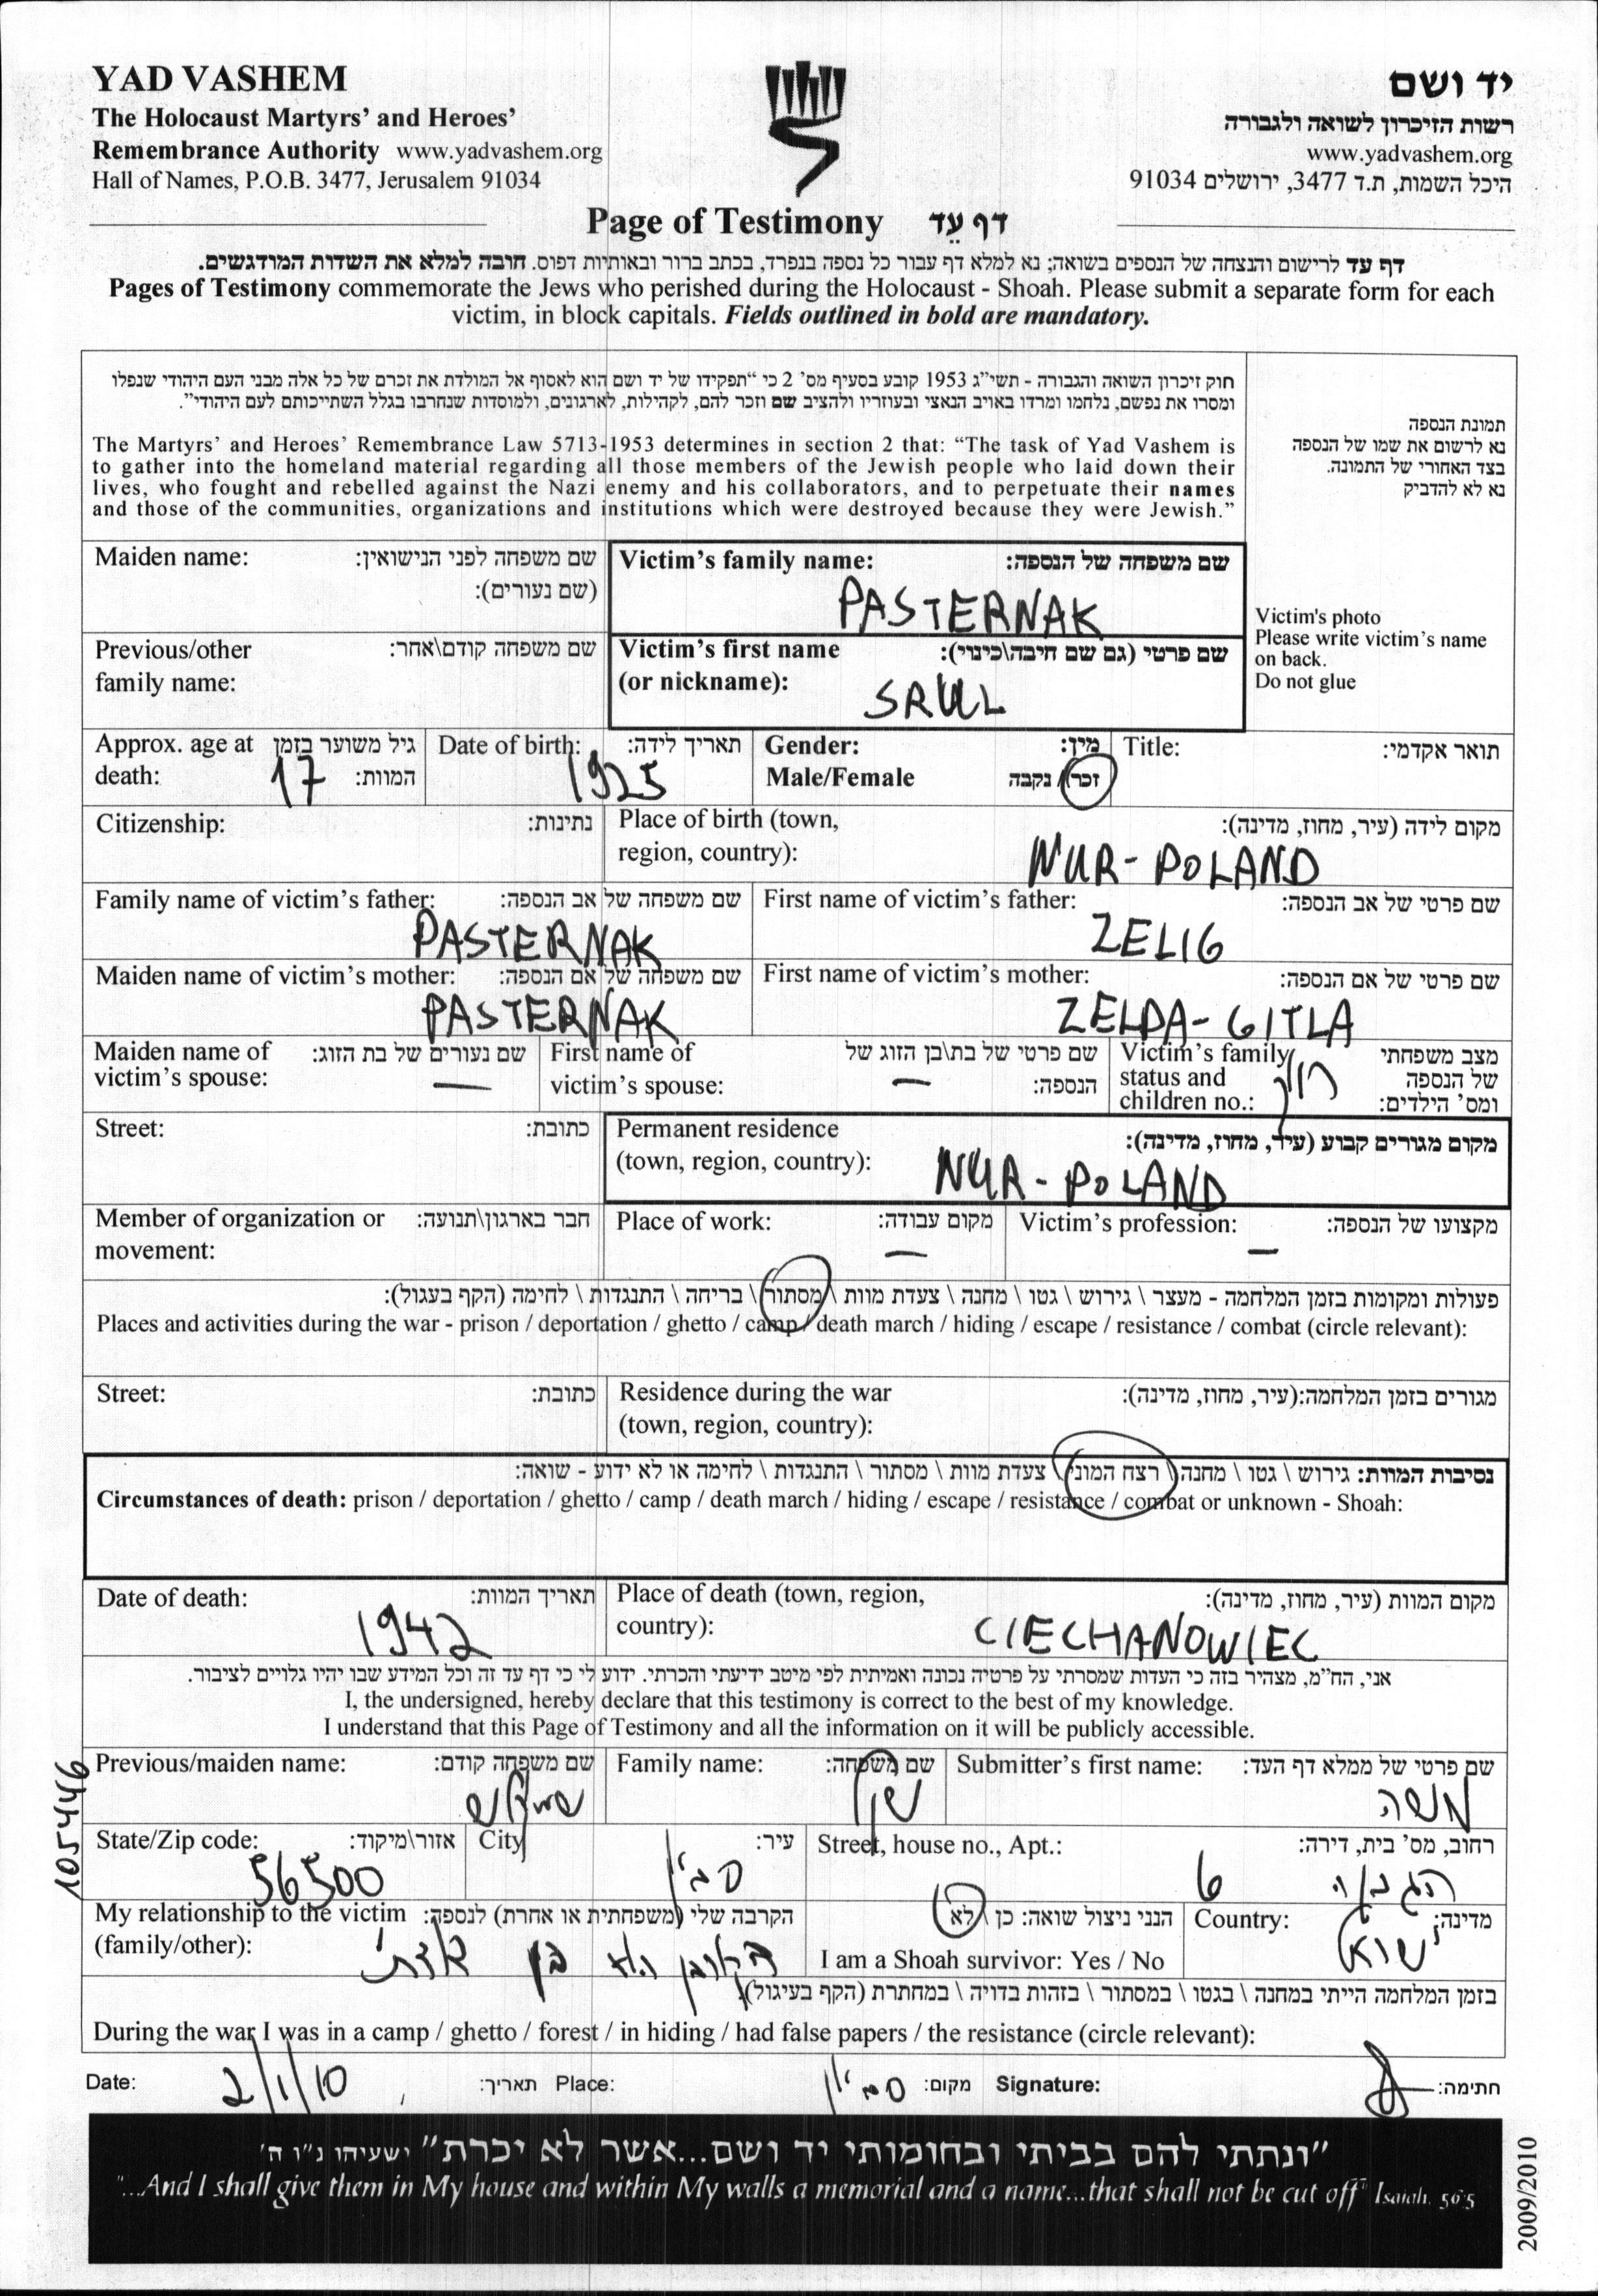 YAD VASHEM
The Holocaust Martyrs' and Heroes'
Remembrance Authority www.yadvashem.org
Hall of Names, P.O.B. 3477, Jerusalem 91034
יד ושם
רשות הזיכרון לשואה ולגבורה
www.yadvashem.org
היכל השמות, ת.ד 3477, ירושלים 91034
Page of Testimony דף עֵד
דף עד לרישום והנצחה של הנספים בשואה; נא למלא דף עבור כל נספה בנפרד, בכתב ברור ובאותיות דפוס. חובה למלא את השדות המודגשים.
Pages of Testimony commemorate the Jews who perished during the Holocaust - Shoah. Please submit a separate form for each
victim, in block capitals. Fields outlined in bold are mandatory.
חוק זיכרון השואה והגבורה - תשי"ג 1953 קובע בסעיף מס' 2 כי "תפקידו של יד ושם הוא לאסוף אל המולדת את זכרם של כל אלה מבני העם היהודי שנפלו
ומסרו את נפשם, נלחמו ומרדו באויב הנאצי ובעוזריו ולהציב שם וזכר להם, לקהילות, לארגונים, ולמוסדות שנחרבו בגלל השתייכותם לעם היהודי".
The Martyrs' and Heroes' Remembrance Law 5713-1953 determines in section 2 that: "The task of Yad Vashem is
to gather into the homeland material regarding all those members of the Jewish people who laid down their
lives, who fought and rebelled against the Nazi enemy and his collaborators, and to perpetuate their names
and those of the communities, organizations and institutions which were destroyed because they were Jewish."
תמונת הנספה
נא לרשום את שמו של הנספה
בצד האחורי של התמונה.
נא לא להדביק
Victim's photo
Please write victim's name
on back.
Do not glue
Maiden name: שם משפחה לפני הנישואין:
(שם נעורים):
Victim's family name: שם משפחה של הנספה:
PASTERNAK
Previous/other שם משפחה קודם\אחר:
family name:
Victim's first name שם פרטי (גם שם חיבה\כינוי):
(or nickname):
SRUL
Approx. age at גיל משוער בזמן
death: 17 המוות:
Date of birth: תאריך לידה:
1925
Gender: מין:
Male/Female זכר / נקבה
Title: תואר אקדמי:
Citizenship: נתינות:
Place of birth (town, מקום לידה (עיר, מחוז, מדינה):
region, country): NUR-POLAND
Family name of victim's father: שם משפחה של אב הנספה:
PASTERNAK
First name of victim's father: שם פרטי של אב הנספה:
ZELIG
Maiden name of victim's mother: שם משפחה של אם הנספה:
PASTERNAK
First name of victim's mother: שם פרטי של אם הנספה:
ZELDA-GITLA
Maiden name of שם נעורים של בת הזוג:
victim's spouse: —
First name of שם פרטי של בת\בן הזוג של
victim's spouse: — הנספה:
Victim's family מצב משפחתי
status and של הנספה
children no.: ומס' הילדים:
רווק
Street: כתובת:
Permanent residence מקום מגורים קבוע (עיר, מחוז, מדינה):
(town, region, country): NUR-POLAND
Member of organization or חבר בארגון\תנועה:
movement:
Place of work: מקום עבודה:
—
Victim's profession: מקצועו של הנספה:
—
פעולות ומקומות בזמן המלחמה - מעצר \ גירוש \ גטו \ מחנה \ צעדת מוות \ מסתור \ בריחה \ התנגדות \ לחימה (הקף בעגול):
Places and activities during the war - prison / deportation / ghetto / camp / death march / hiding / escape / resistance / combat (circle relevant):
Street: כתובת:
Residence during the war מגורים בזמן המלחמה:(עיר, מחוז, מדינה):
(town, region, country):
נסיבות המוות: גירוש \ גטו \ מחנה \ רצח המוני \ צעדת מוות \ מסתור \ התנגדות \ לחימה או לא ידוע - שואה:
Circumstances of death: prison / deportation / ghetto / camp / death march / hiding / escape / resistance / combat or unknown - Shoah:
Date of death: תאריך המוות:
1942
Place of death (town, region, מקום המוות (עיר, מחוז, מדינה):
country): CIECHANOWIEC
אני, הח"מ, מצהיר בזה כי העדות שמסרתי על פרטיה נכונה ואמיתית לפי מיטב ידיעתי והכרתי. ידוע לי כי דף עד זה וכל המידע שבו יהיו גלויים לציבור.
I, the undersigned, hereby declare that this testimony is correct to the best of my knowledge.
I understand that this Page of Testimony and all the information on it will be publicly accessible.
Previous/maiden name: שם משפחה קודם:
Family name: שם משפחה:
Submitter's first name: שם פרטי של ממלא דף העד:
משה
State/Zip code: אזור\מיקוד:
56500
City עיר:
סביון
Street, house no., Apt.: רחוב, מס' בית, דירה:
6
My relationship to the victim הקרבה שלי (משפחתית או אחרת) לנספה:
(family/other):
הנני ניצול שואה: כן \ לא
I am a Shoah survivor: Yes / No
Country: מדינה:
ישראל
בזמן המלחמה הייתי במחנה \ בגטו \ במסתור \ בזהות בדויה \ במחתרת (הקף בעיגול)
During the war I was in a camp / ghetto / forest / in hiding / had false papers / the resistance (circle relevant):
Date: 2/1/10 תאריך: Place: סביון מקום: Signature: חתימה:
"ונתתי להם בביתי ובחומותי יד ושם...אשר לא יכרת" ישעיהו נ"ו ה'
"...And I shall give them in My house and within My walls a memorial and a name...that shall not be cut off" Isaiah, 56:5
105446
2009/2010